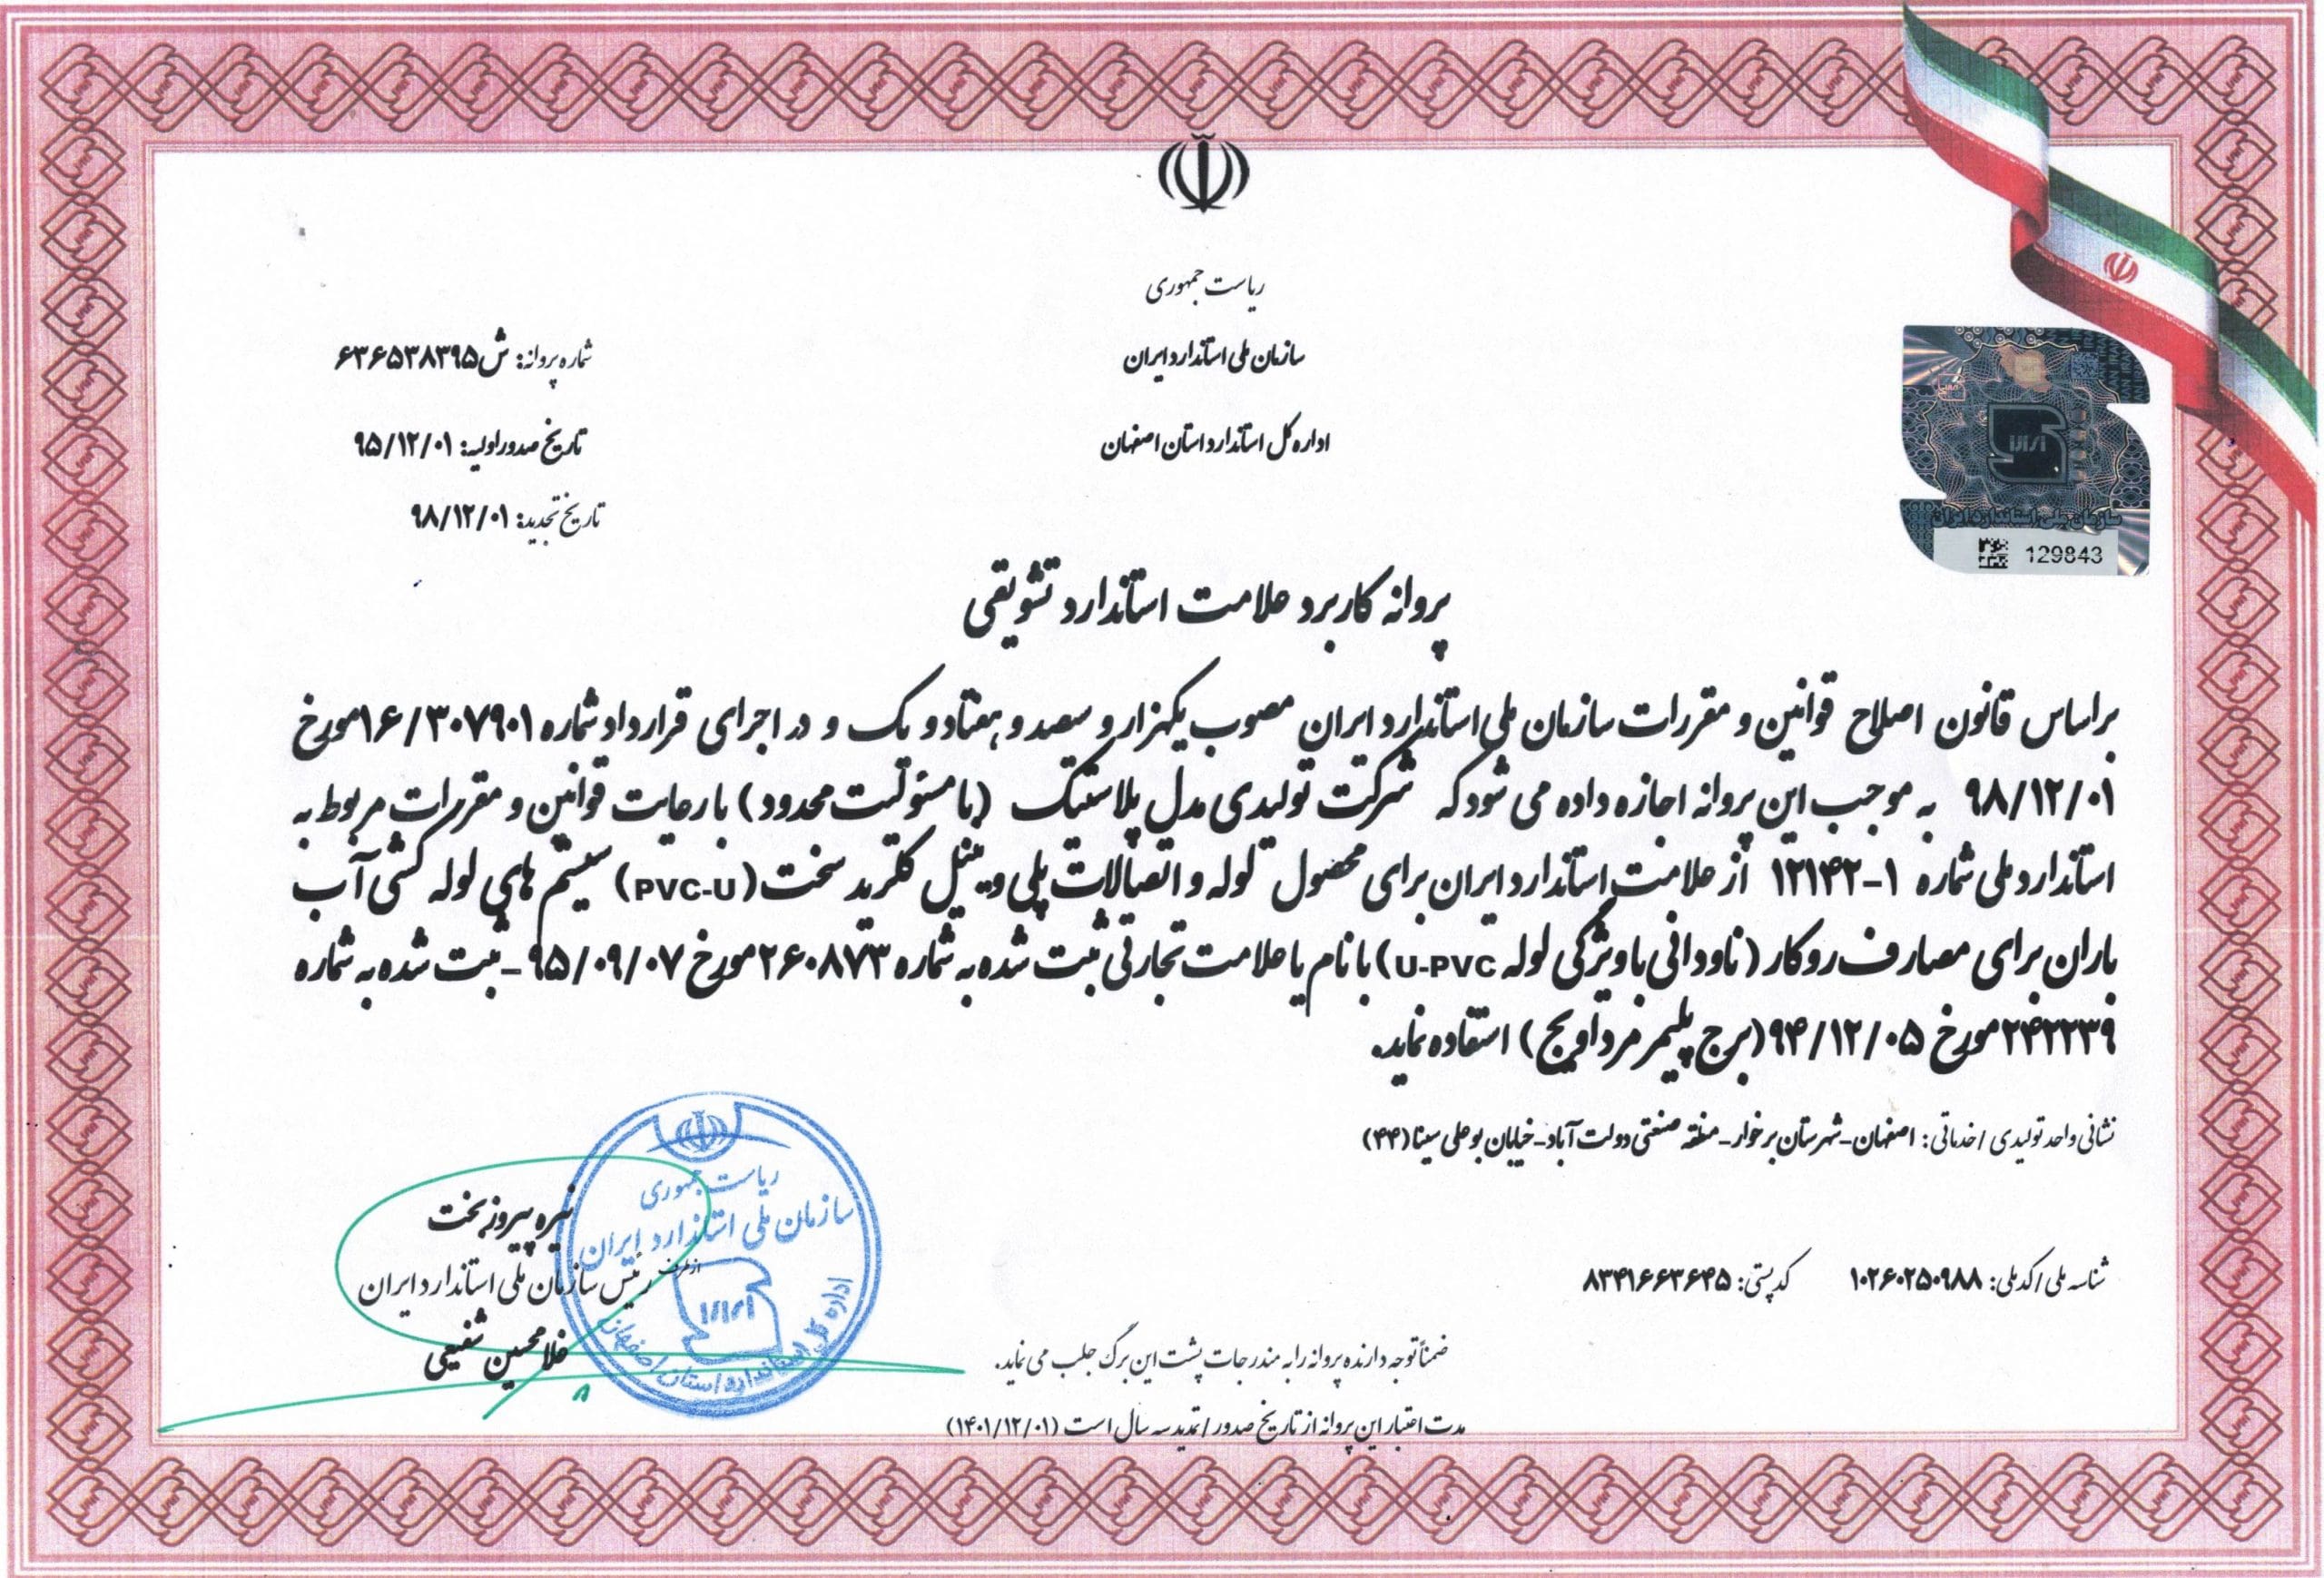 ریاست جمهوری
سازمان ملی استاندارد ایران
اداره کل استاندارد استان اصفهان
شماره پروانه: ش۶۳۶۵۳۸۳۹۵
تاریخ صدور اولیه: ۹۵/۱۲/۰۱
تاریخ تجدید: ۹۸/۱۲/۰۱
سازمان ملی استاندارد ایران
129843
پروانه کاربرد علامت استاندارد تشویقی
براساس قانون اصلاح قوانین و مقررات سازمان ملی استاندارد ایران مصوب یکهزار و سیصد و هفتاد و یک و در اجرای قرارداد شماره ۱۶/۳۰۷۹۰۱مورخ
۹۸/۱۲/۰۱ به موجب این پروانه اجازه داده می شود که شرکت تولیدی مدل پلاستیک (با مسئولیت محدود) با رعایت قوانین و مقررات مربوط به
استاندارد ملی شماره ۱-۱۲۱۴۲ از علامت استاندارد ایران برای محصول لوله و اتصالات پلی وینیل کلرید سخت (PVC-U) سیستم های لوله کشی آب
باران برای مصارف روکار (ناودانی با ویژگی لوله U-PVC) با نام یا علامت تجارتی ثبت شده به شماره ۲۶۰۸۷۳مورخ ۹۵/۰۹/۰۷ - ثبت شده به شماره
۲۴۲۲۳۹مورخ ۹۴/۱۲/۰۵(برج پلیمر مرداویج) استفاده نماید.
نشانی واحد تولیدی / خدماتی: اصفهان-شهرستان برخوار- منطقه صنعتی دولت آباد-خیابان بوعلی سینا (۴۴)
شناسه ملی/کد ملی: ۱۰۲۶۰۲۵۰۹۸۸ کدپستی: ۸۳۴۱۶۶۳۶۴۵
نیره پیروزبخت
از طرف رئیس سازمان ملی استاندارد ایران
غلامحسین شفیعی
ریاست جمهوری
سازمان ملی استاندارد ایران
اداره کل استاندارد استان اصفهان
ضمناً توجه دارنده پروانه را به مندرجات پشت این برگ جلب می نماید.
مدت اعتبار این پروانه از تاریخ صدور / تمدید سه سال است (۱۴۰۱/۱۲/۰۱)